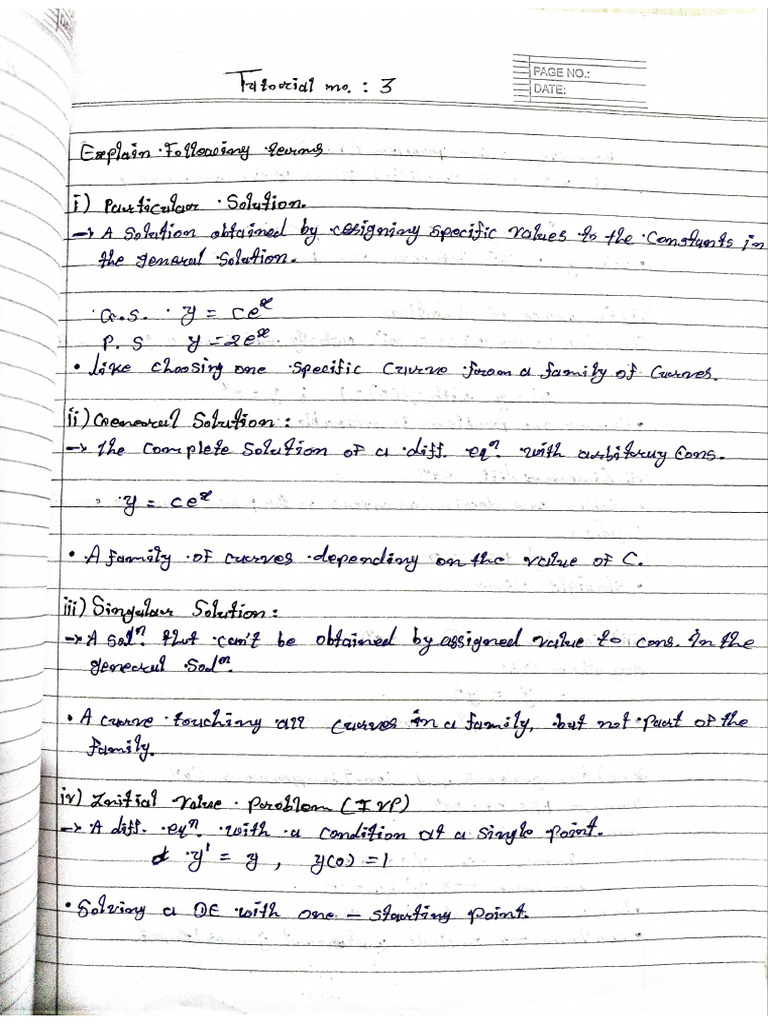 Tutorial no. : 3
PAGE NO.:
DATE:
Explain Following terms
i) Particular Solution.
→ A Solution obtained by assigning specific values to the Constants in
the general Solution.
G.S. y = ce^x
P.S y = 2e^x
• like choosing one specific Curve from a family of Curves.
ii) General Solution :
→ the complete Solution of a diff. eqⁿ. with arbitrary Cons.
y = ce^x
• A family of curves depending on the value of C.
iii) Singular Solution :
→ A Solⁿ. that can't be obtained by assigned value to cons. in the
general Solⁿ.
• A curve touching all curves in a family, but not part of the
family.
iv) Initial Value Problem (IVP)
→ A diff. eqⁿ. with a condition at a single point.
y' = y , y(0) = 1
• Solving a DE with one - starting point.